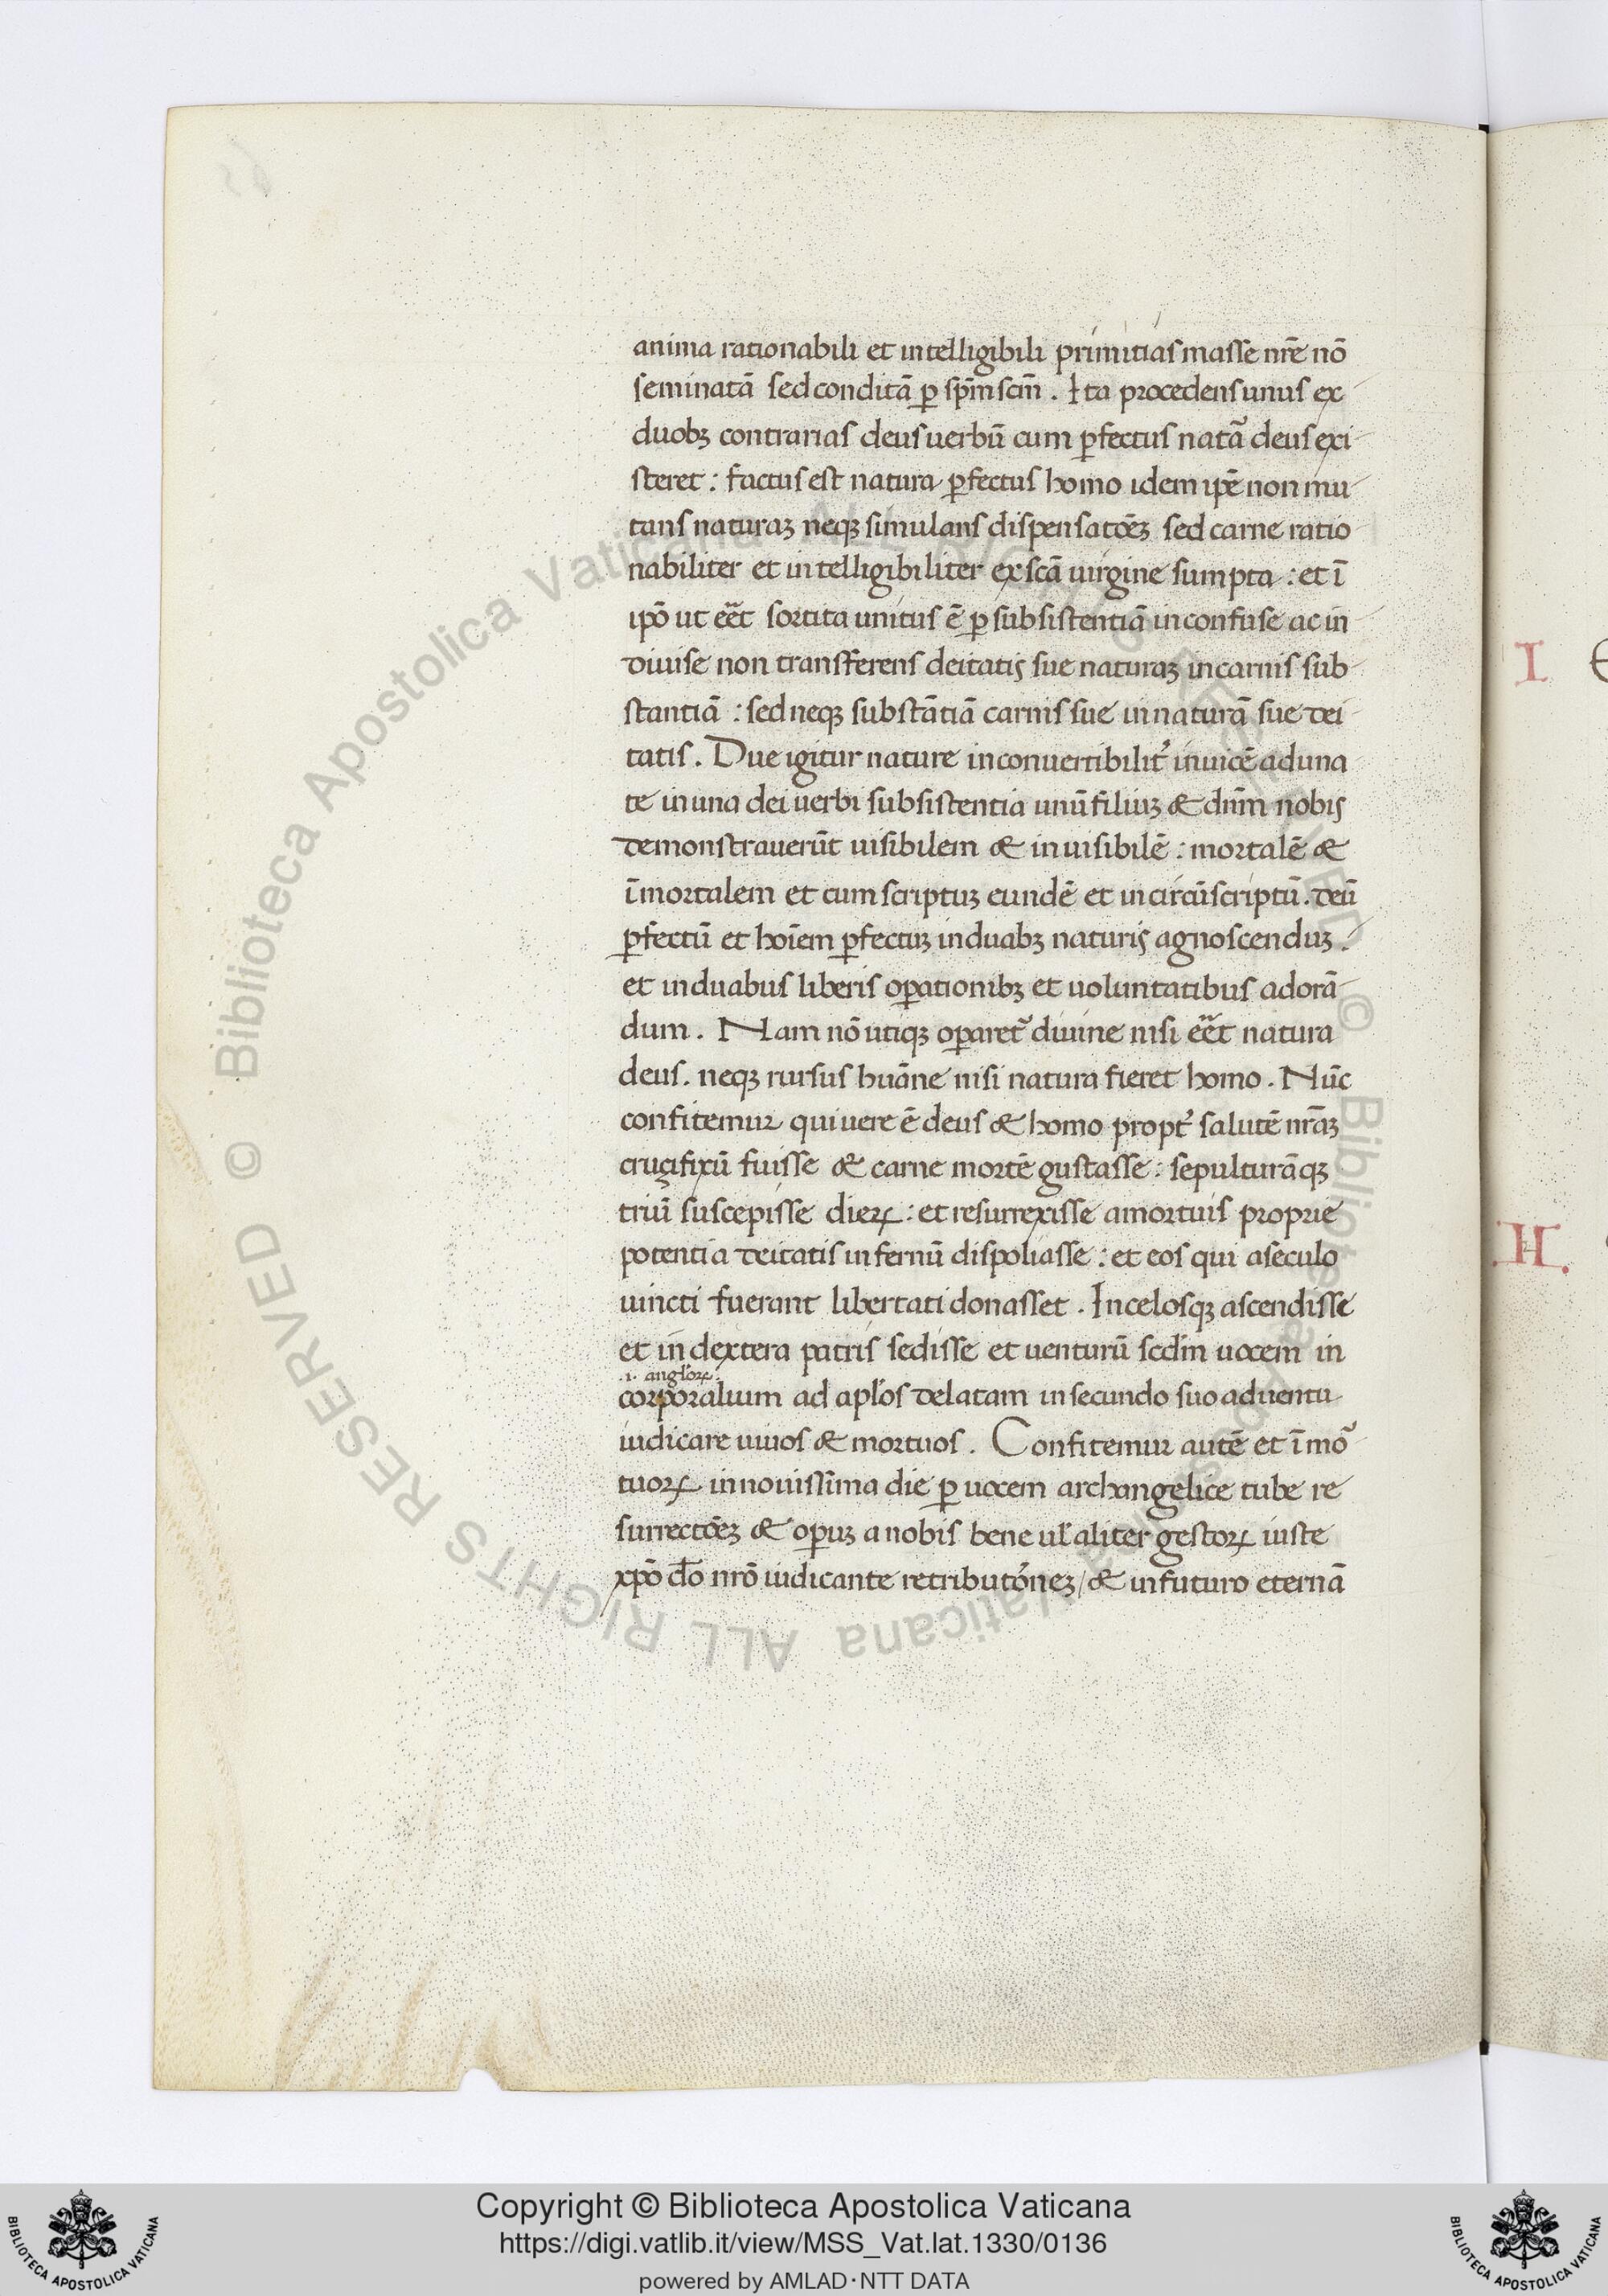 anima rationabili et intelligibili primitias masse nr̄e nō
seminatā sed conditā ꝑ sp̄m sc̄m. Ita procedens unus ex
duobꝫ contrarias deus uerbū cum ꝑfectus nat᷑a deus exi
steret: factus est natura ꝑfectus homo idem ip̄e non mu
tans naturaꝫ neqꝫ simulans dispensatōeꝫ sed carne ratio
nabiliter et intelligibiliter ex scā uirgine sumpta: et ī
ip̄o ut eēt sortita unitus ē ꝑ subsistentiā inconfuse ac in
diuise non transferens deitatis sue naturaꝫ in carnis sub
stantiā: sed neqꝫ substātiā carnis sue in naturā sue dei
tatis. Due igitur nature inconuertibilit᷑ inuicē aduna
te in una dei uerbi subsistentia unū filiuꝫ & dn̄m nobis
demonstrauerūt uisibilem & inuisibilē: mortalē &
īmortalem et cum scriptuꝫ eundē et incircūscriptū. deū
ꝑfectū et hoīem ꝑfectuꝫ in duabꝫ naturis agnoscenduꝫ.
et in duabus liberis oꝑationibꝫ et uoluntatibus adorā
dum. Nam nō utiqꝫ oꝑaret᷑ diuine nisi eēt natura
deus. neqꝫ rursus huāne nisi natura fieret homo. Nūc
confitemur qui uere ē deus & homo propt᷑ salutē nr̄aꝫ
crucifixū fuisse & carne mortē gustasse: sepulturāqꝫ
triū suscepisse dieꝝ: et resurrexisse a mortuis proprie
potentia deitatis infernū dispoliasse: et eos qui a seculo
uincti fuerant libertati donasset. In celosqꝫ ascendisse
et in dextera patris sedisse et uenturū scd̄m uocem in
.i. angl̓oꝝ.
corporalium ad apl̓os delatam in secundo suo aduentu
iudicare uiuos & mortuos. Confitemur autē et īmo᷑
tuoꝝ in nouissīma die ꝑ uocem archangelice tube re
surrectōeꝫ & oꝑuꝫ a nobis bene ul̓ aliter gestoꝝ iuste
xp̄o dō nr̄o iudicante retributōneꝫ / & in futuro eternā
I
H.
Copyright © Biblioteca Apostolica Vaticana
https://digi.vatlib.it/view/MSS_Vat.lat.1330/0136
powered by AMLAD·NTT DATA
BIBLIOTECA APOSTOLICA VATICANA
BIBLIOTECA APOSTOLICA VATICANA
© Biblioteca Apostolica Vaticana ALL RIGHTS RESERVED © Biblioteca Apostolica Vaticana ALL RIGHTS RESERVED